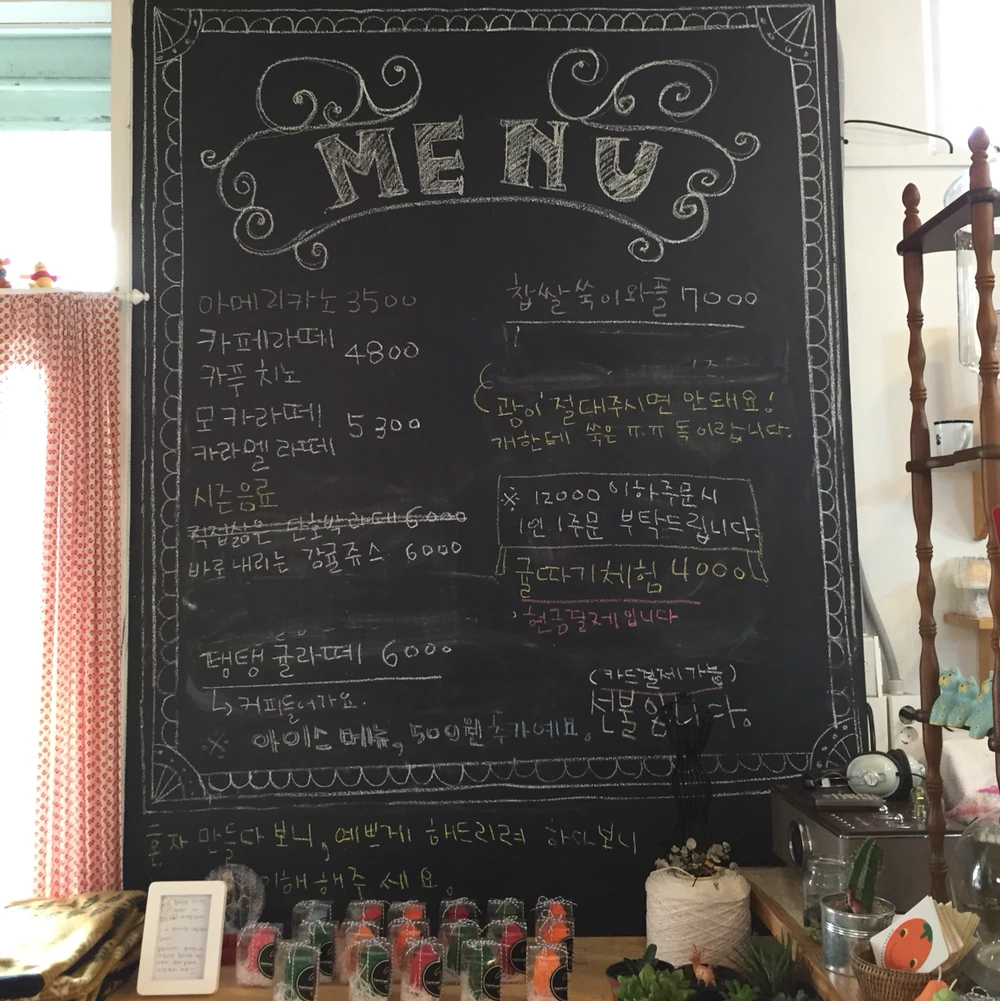 MENU
아메리카노 3500
카페라떼
카푸치노
4800
모카라떼
카라멜라떼
5300
시즌음료
직접삶은 단호박라떼 6000
바로내리는 감귤쥬스 6000
탱탱귤라떼 6000
↳ 커피들어가요.
※ 아이스메뉴, 500원추가예요.
찹쌀쑥이와플 7000
절대주시면 안돼요!
개한테 쑥은 ㅠ.ㅠ 독이랍니다.
※ 12000 이하주문시
1인 1주문 부탁드립니다.
귤따기체험 4000
현금결제입니다
(카드결제가능)
선불입니다.
혼자 만들다보니, 예쁘게 해드리려 하다보니
해해주세요.